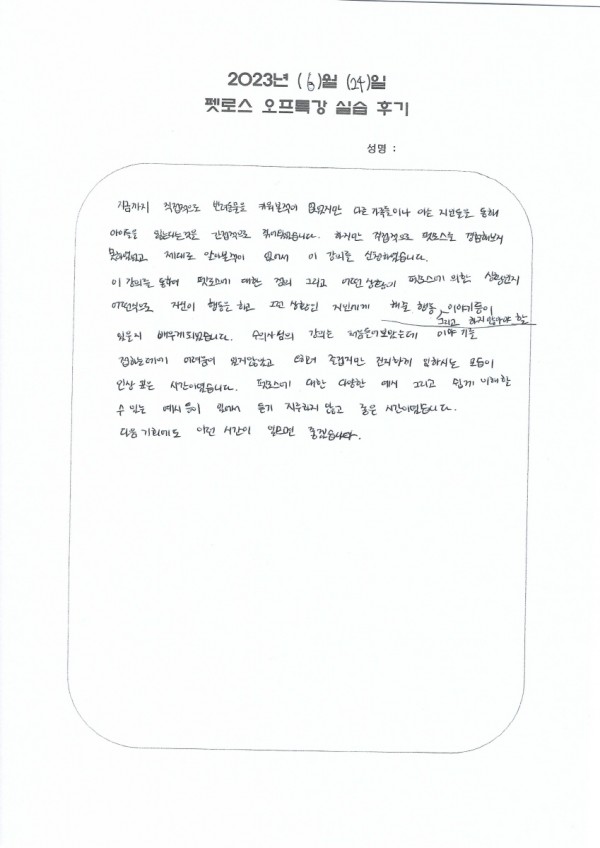 2023년 (6)월 (24)일
펫로스 오프특강 실습 후기
성명 :
지금까지 직접적으로 반려동물을 키워본적이 없었지만 다른 가족들이나 아는 지인들을 통해
아이들을 잃는다는것을 간접적으로 하지만 직접적으로 펫로스를 경험해보지
못하였었고 제대로 알아본적이 없어서 이 강의를 신청하였습니다.
이 강의를 통하여 펫로스에 대한 정의 그리고 어떤 상황이 펫로스에 의한 상황인지
어떤식으로 자신이 행동을 하고 그런 상황인 지인에게 해줄 행동, 이야기들이
그리고 하지 않아야 할
있을지 배우게 되었습니다. 수의사님의 강의는 처음들어보았는데 이야기를
접하는데에 어려움이 있지않았고 즐겁지만 진지하게 임하시는 모습이
인상 깊은 시간이였습니다. 펫로스에 대한 다양한 예시 그리고 쉽게 이해할
수 있는 예시들이 있어서 듣기 지루하지 않고 좋은 시간이였습니다.
다음 기회에도 이런 시간이 있으면 좋겠습니다.